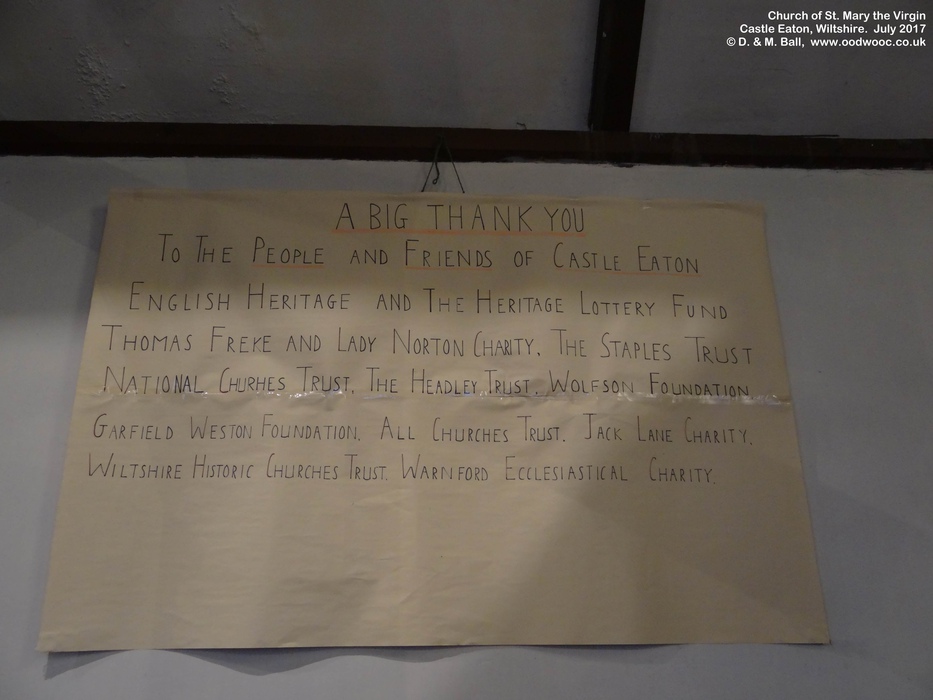 Church of St. Mary the Virgin
Castle Eaton, Wiltshire. July 2017
© D. & M. Ball, www.oodwooc.co.uk
A BIG THANK YOU
TO THE PEOPLE AND FRIENDS OF CASTLE EATON
ENGLISH HERITAGE AND THE HERITAGE LOTTERY FUND
THOMAS FREKE AND LADY NORTON CHARITY. THE STAPLES TRUST
NATIONAL CHURHES TRUST. THE HEADLEY TRUST. WOLFSON FOUNDATION
GARFIELD WESTON FOUNDATION. ALL CHURCHES TRUST. JACK LANE CHARITY.
WILTSHIRE HISTORIC CHURCHES TRUST. WARNFORD ECCLESIASTICAL CHARITY.